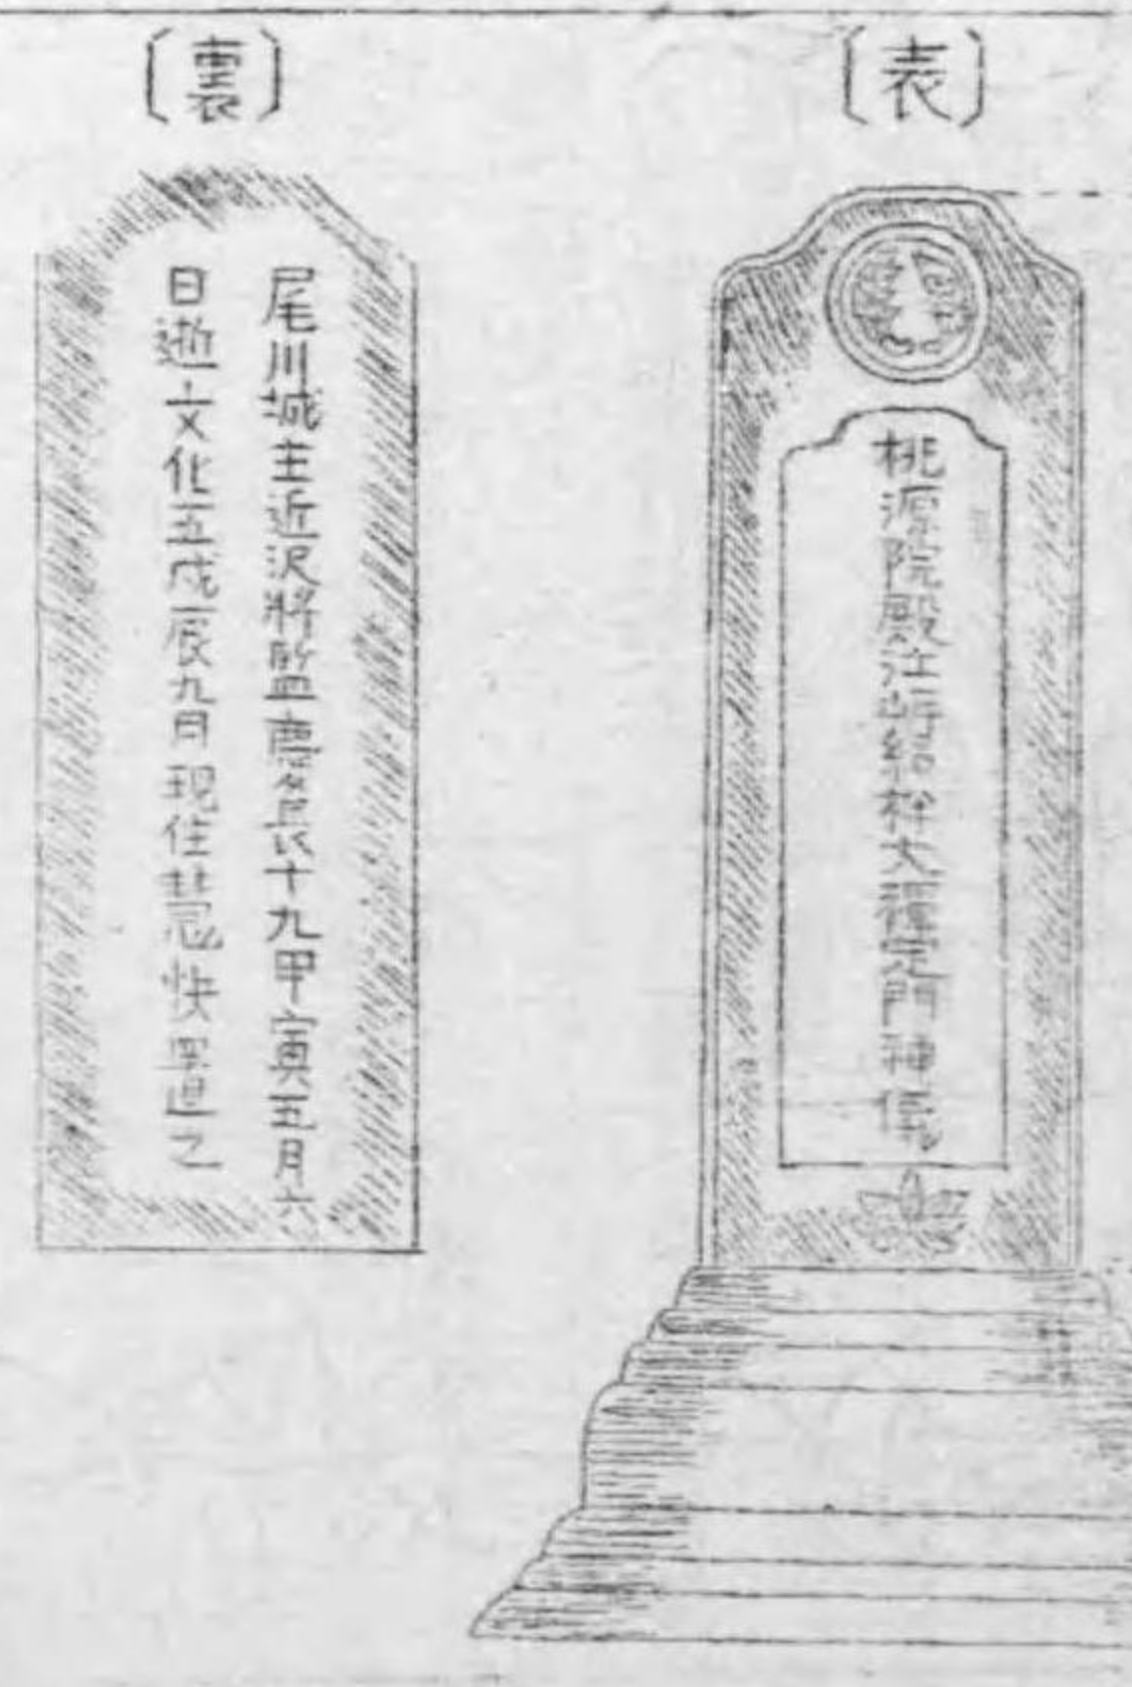 〔表〕
桃源院殿江 大禅定門神儀
〔裏〕
尾川城主近沢將監慶長十九甲寅五月六
日逝文化五戊辰九月現住慧快 之